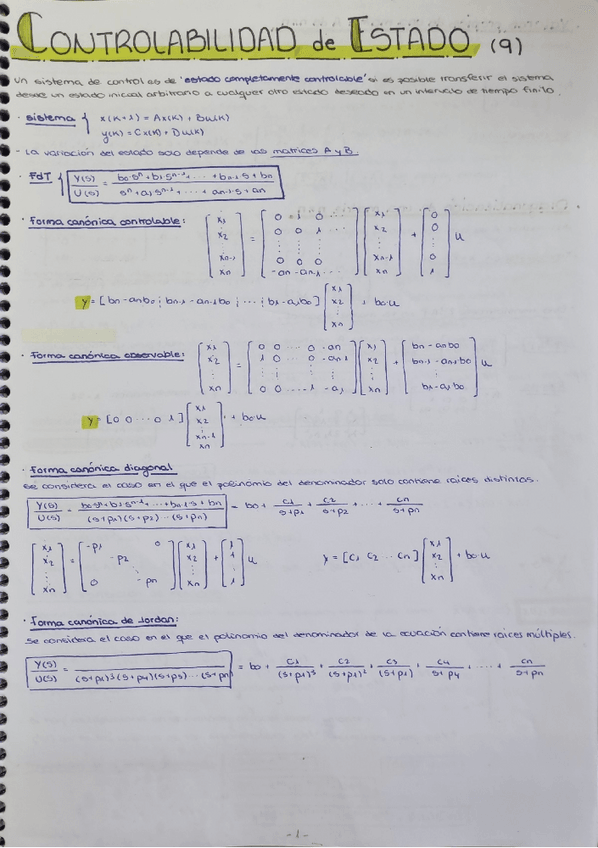 CONTROLABILIDAD de ESTADO (9)
un sistema de control es de 'estado completamente controlable' si es posible transferir el sistema
desde un estado inicial arbitrario a cualquier otro estado deseado en un intervalo de tiempo finito.
· Sistema { x(k+1) = Ax(k) + Bu(k)
y(k) = Cx(k) + Du(k)
- La variación del estado solo depende de las matrices A y B.
· FdT { Y(s) / U(s) = b0·s^n + b1·s^n-1 + ··· + bn-1·s + bn / s^n + a1·s^n-1 + ··· + an-1·s + an
· Forma canónica controlable: [x1 x2 ⋮ xn-1 xn] = [0 1 0 ··· ; 0 0 1 ··· ; ⋮ ⋮ ⋮ ; 0 0 0 ; -an -an-1 ···] [x1 x2 ⋮ xn-1 xn] + [0 0 ⋮ 0 1] u
y = [bn - an b0 ⋮ bn-1 - an-1 b0 ⋮ ··· ⋮ b1 - a1 b0] [x1 x2 ⋮ xn] + b0·u
· Forma canónica observable: [x1 x2 ⋮ xn] = [0 0 ··· 0 -an ; 1 0 ··· 0 -an-1 ; ⋮ ; 0 0 ··· 1 -a1] [x1 x2 ⋮ xn] + [bn - an b0 ; bn-1 - an-1 b0 ; ⋮ ; b1 - a1 b0] u
y = [0 0 ··· 0 1] [x1 x2 ⋮ xn-1 xn] + b0·u
· Forma canónica diagonal
se considera el caso en el que el polinomio del denominador solo contiene raíces distintas.
Y(s) / U(s) = b0·s^n + b1·s^n-1 + ··· + bn-1·s + bn / (s+p1)(s+p2)···(s+pn) = b0 + c1 / s+p1 + c2 / s+p2 + ··· + cn / s+pn
[x1 x2 ⋮ xn] = [-p1 0 ; -p2 ; ⋱ ; 0 -pn] [x1 x2 ⋮ xn] + [1 1 ⋮ 1] u y = [c1 c2 ··· cn] [x1 x2 ⋮ xn] + b0·u
· Forma canónica de Jordan:
se considera el caso en el que el polinomio del denominador de la ecuación contiene raíces múltiples.
Y(s) / U(s) = / (s+p1)^3 (s+p4)(s+p5)···(s+pn) = b0 + c1 / (s+p1)^3 + c2 / (s+p1)^2 + c3 / (s+p1) + c4 / s+p4 + ··· + cn / s+pn
- 1 -